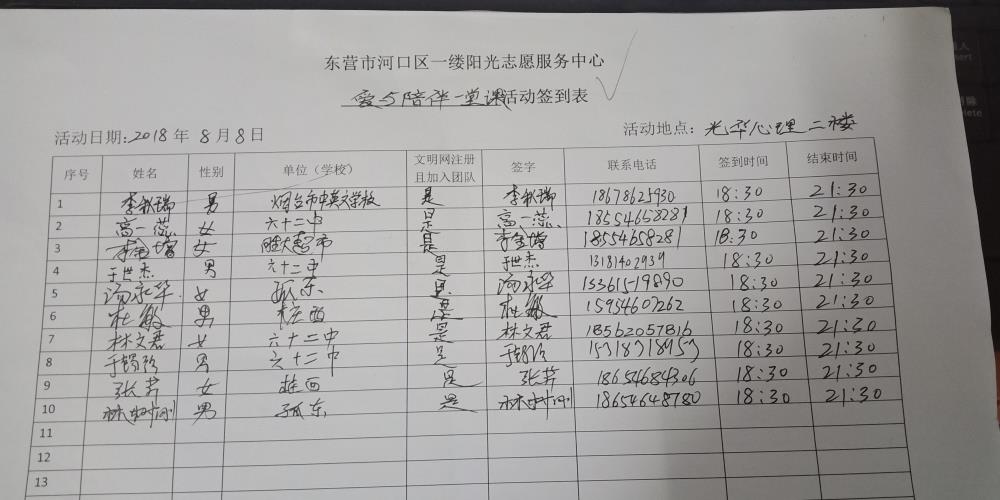 东营市河口区一缕阳光志愿服务中心
爱与陪伴一堂课活动签到表
活动日期:2018年8月8日 活动地点：光华心理二楼
序号 姓名 性别 单位（学校） 文明网注册且加入团队 签字 联系电话 签到时间 结束时间
1 李秋瑞 男 烟台市中英文学校 是 李秋瑞 18678625930 18:30 21:30
2 高一蕊 女 六十二中 是 高一蕊 18554658281 18:30 21:30
3 女 胜大超市 是 18554658281 18:30 21:30
4 于世杰 男 六十二中 是 于世杰 13181402939 18:30 21:30
5 女 孤东 是 13361519890 18:30 21:30
6 杜敏 男 桩西 是 杜敏 15954607262 18:30 21:30
7 林文君 女 六十二中 是 林文君 18562057816 18:30 21:30
8 男 六十二中 是 18:30 21:30
9 张芳 女 桩西 是 张芳 18654684306 18:30 21:30
10 林树刚 男 孤东 是 林树刚 18654648780 18:30 21:30
11
12
13